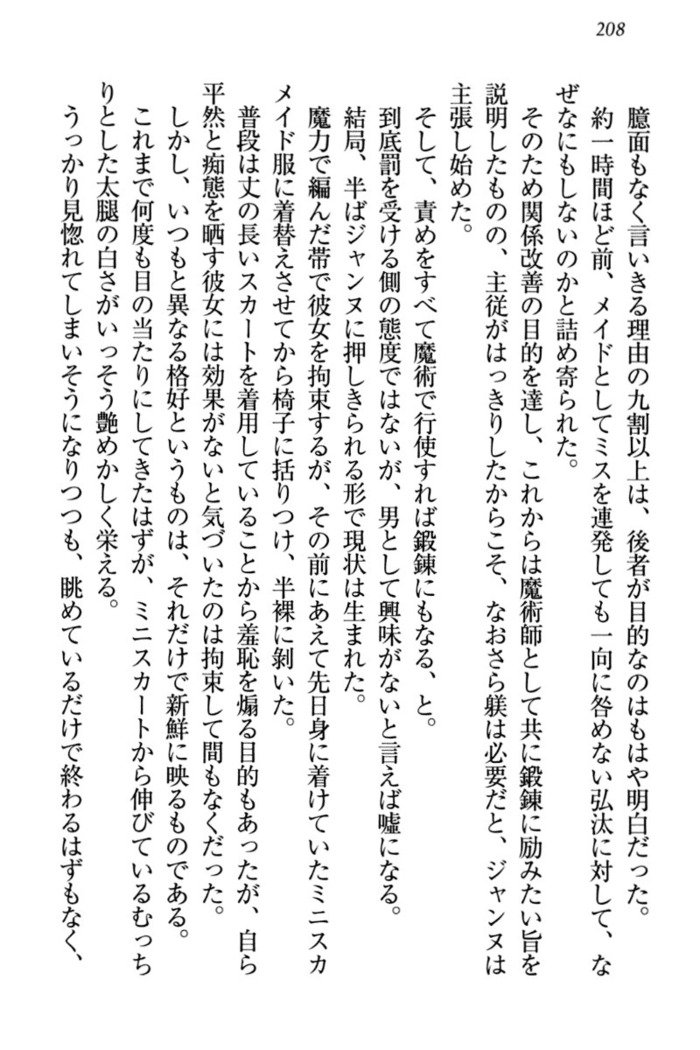 208
臆面もなく言いきる理由の九割以上は、後者が目的なのはもはや明白だった。
約一時間ほど前、メイドとしてミスを連発しても一向に咎めない弘汰に対して、な
ぜなにもしないのかと詰め寄られた。
そのため関係改善の目的を達し、これからは魔術師として共に鍛錬に励みたい旨を
説明したものの、主従がはっきりしたからこそ、なおさら躾は必要だと、ジャンヌは
主張し始めた。
そして、責めをすべて魔術で行使すれば鍛錬にもなる、と。
到底罰を受ける側の態度ではないが、男として興味がないと言えば嘘になる。
結局、半ばジャンヌに押しきられる形で現状は生まれた。
魔力で編んだ帯で彼女を拘束するが、その前にあえて先日身に着けていたミニスカ
メイド服に着替えさせてから椅子に括りつけ、半裸に剝いた。
普段は丈の長いスカートを着用していることから羞恥を煽る目的もあったが、自ら
平然と痴態を晒す彼女には効果がないと気づいたのは拘束して間もなくだった。
しかし、いつもと異なる格好というものは、それだけで新鮮に映るものである。
これまで何度も目の当たりにしてきたはずが、ミニスカートから伸びているむっち
りとした太腿の白さがいっそう艶めかしく栄える。
うっかり見惚れてしまいそうになりつつも、眺めているだけで終わるはずもなく、